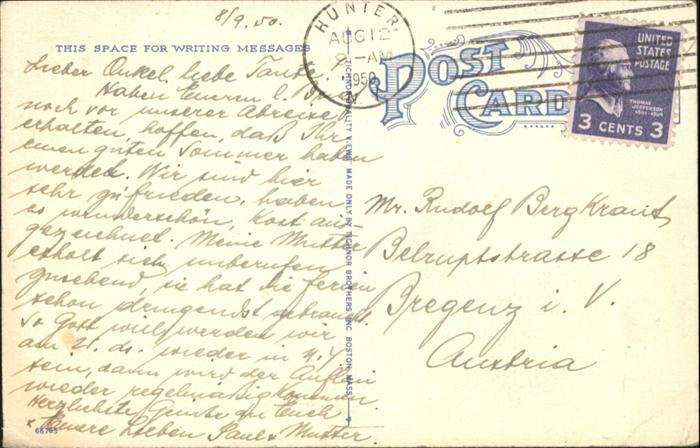 8/9.50.
THIS SPACE FOR WRITING MESSAGES
Lieber Onkel, liebe Tante
Haben Eueren l. Br.
noch vor unserer Abreise
erhalten, hoffen, daß Ihr
einen guten Sommer haben
werdet. Wir sind hier
sehr zufrieden, haben
es wunderschön, Kost aus-
gezeichnet. Meine Mutter
erholt sich unberufen
zusehend, sie hat die Ferien
schon dringendst gebraucht
So Gott will werden wir
am 21. ds. wieder in N.Y.
sein, dann wird der
wieder regelmässig kommen
Herzlichste Grüsse an Euch
+ Euere Lieben Paul + Mutter
66795
TICHNOR QUALITY VIEWS MADE ONLY BY TICHNOR BROTHERS, INC., BOSTON, MASS.
HUNTER,
AUG 12
-AM
1950
N.Y.
POST CARD
UNITED
STATES
POSTAGE
THOMAS
JEFFERSON
1801-1809
3 CENTS 3
Mr. Rudolf Bergkraut
Belruptstrasse 18
Bregenz i. V.
Austria